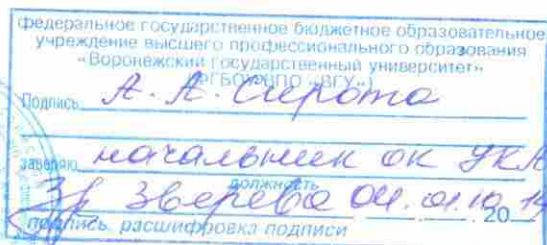 федеральное государственное бюджетное образовательное
учреждение высшего профессионального образования
«Воронежский государственный университет»
(ФГБОУ ВПО «ВГУ»)
Подпись А. А. Сирота
заверяю начальник ОК УКА
должность
Зверева 01.10.14
20
подпись, расшифровка подписи